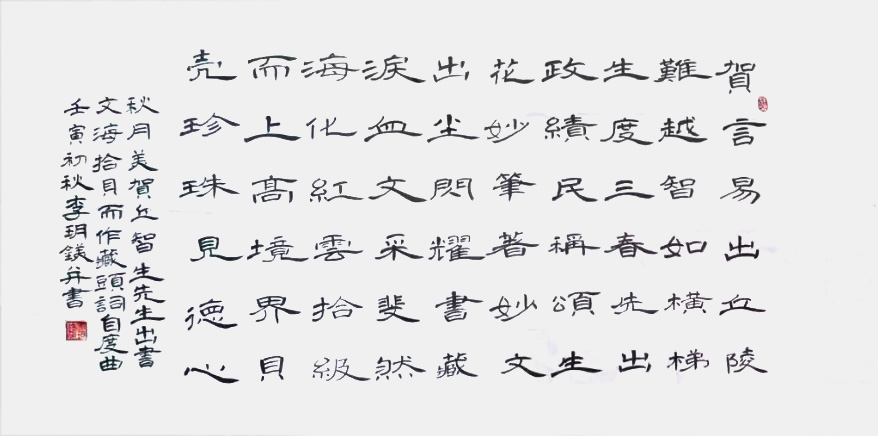 賀言易出丘陵
難越智如橫梯
生度三春先出
政績民稱頌生
花妙筆著妙文
出尘閃耀書藏
淚血文采斐然
海化紅雲拾級
而上高境界貝
壳珍珠見德心
秋月美賀丘智生先生出書
文海拾貝而作藏頭詞自度曲
壬寅初秋李玥鎂并書